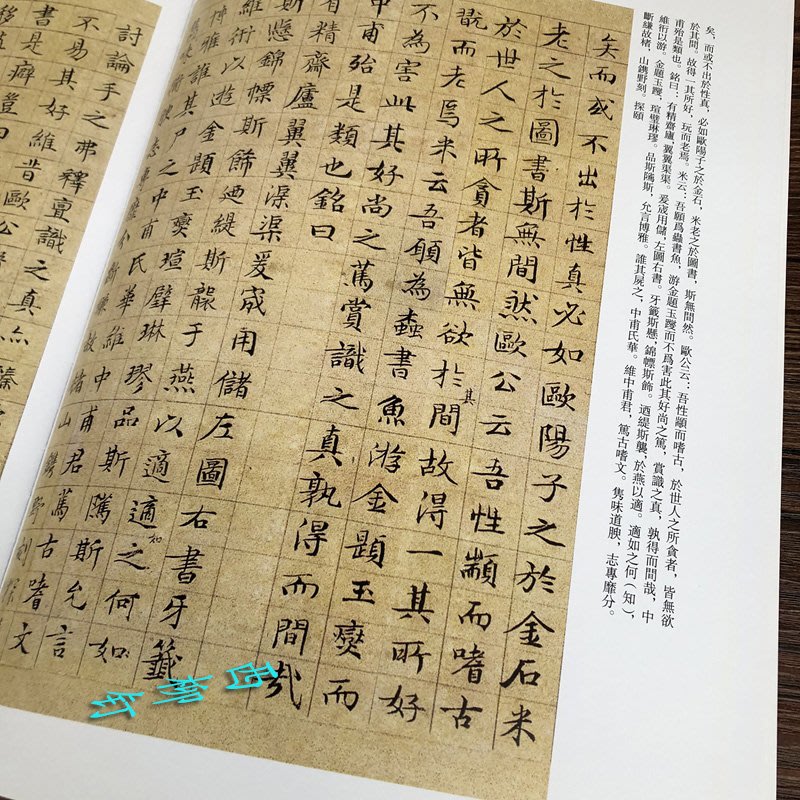 矣，而或不出於性真，必如歐陽子之於金石，米老之於圖書，斯無間然。歐公云：吾性顓而嗜古，於世人之所貪者，皆無欲
於其間。故得一其所好，玩而老焉。米云：吾願爲蠹書魚，游金題玉躞而不爲害此其好尚之篤，賞識之真，孰得而間哉，中
甫殆是類也。銘曰：有精齋廬，翼翼渠渠。爰宬用儲，左圖右書。牙籤斯懸，錦幖斯飾。迺緹斯襲，於燕以適。適如之何（知），
維衎以游。金題玉躞，瑄璧琳璆。品斯隲斯，允言博雅。誰其屍之，中甫氏華。維中甫君，篤古嗜文。雋味道腴，志專靡分。
斷縑故楮，山鐫野刻。探頤
矣而或不出於性真必如歐陽子之於金石米
老之於圖書斯無間然歐公云吾性顓而嗜古
於世人之所貪者皆無欲於其間故得一其所好
翫而老焉米云吾願為蠹書魚游金題玉躞而
不為害此其好尚之篤賞識之真孰得而間哉
中甫殆是類也銘曰
有精齋廬翼翼渠渠爰宬用儲左圖右書牙籤
斯懸錦幖斯飾迺緹斯襲于燕以適適之何如
維衎以遊金題玉躞瑄璧琳璆品斯隲斯允言
博雅誰其尸之中甫氏華維中甫君篤古嗜文
志專靡分斷縑故楮山鐫野刻探
討論手之弗釋亶識之真
不易其好維昔歐公
書是癖
西柳軒